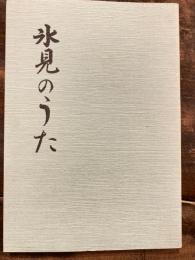 氷見のうた